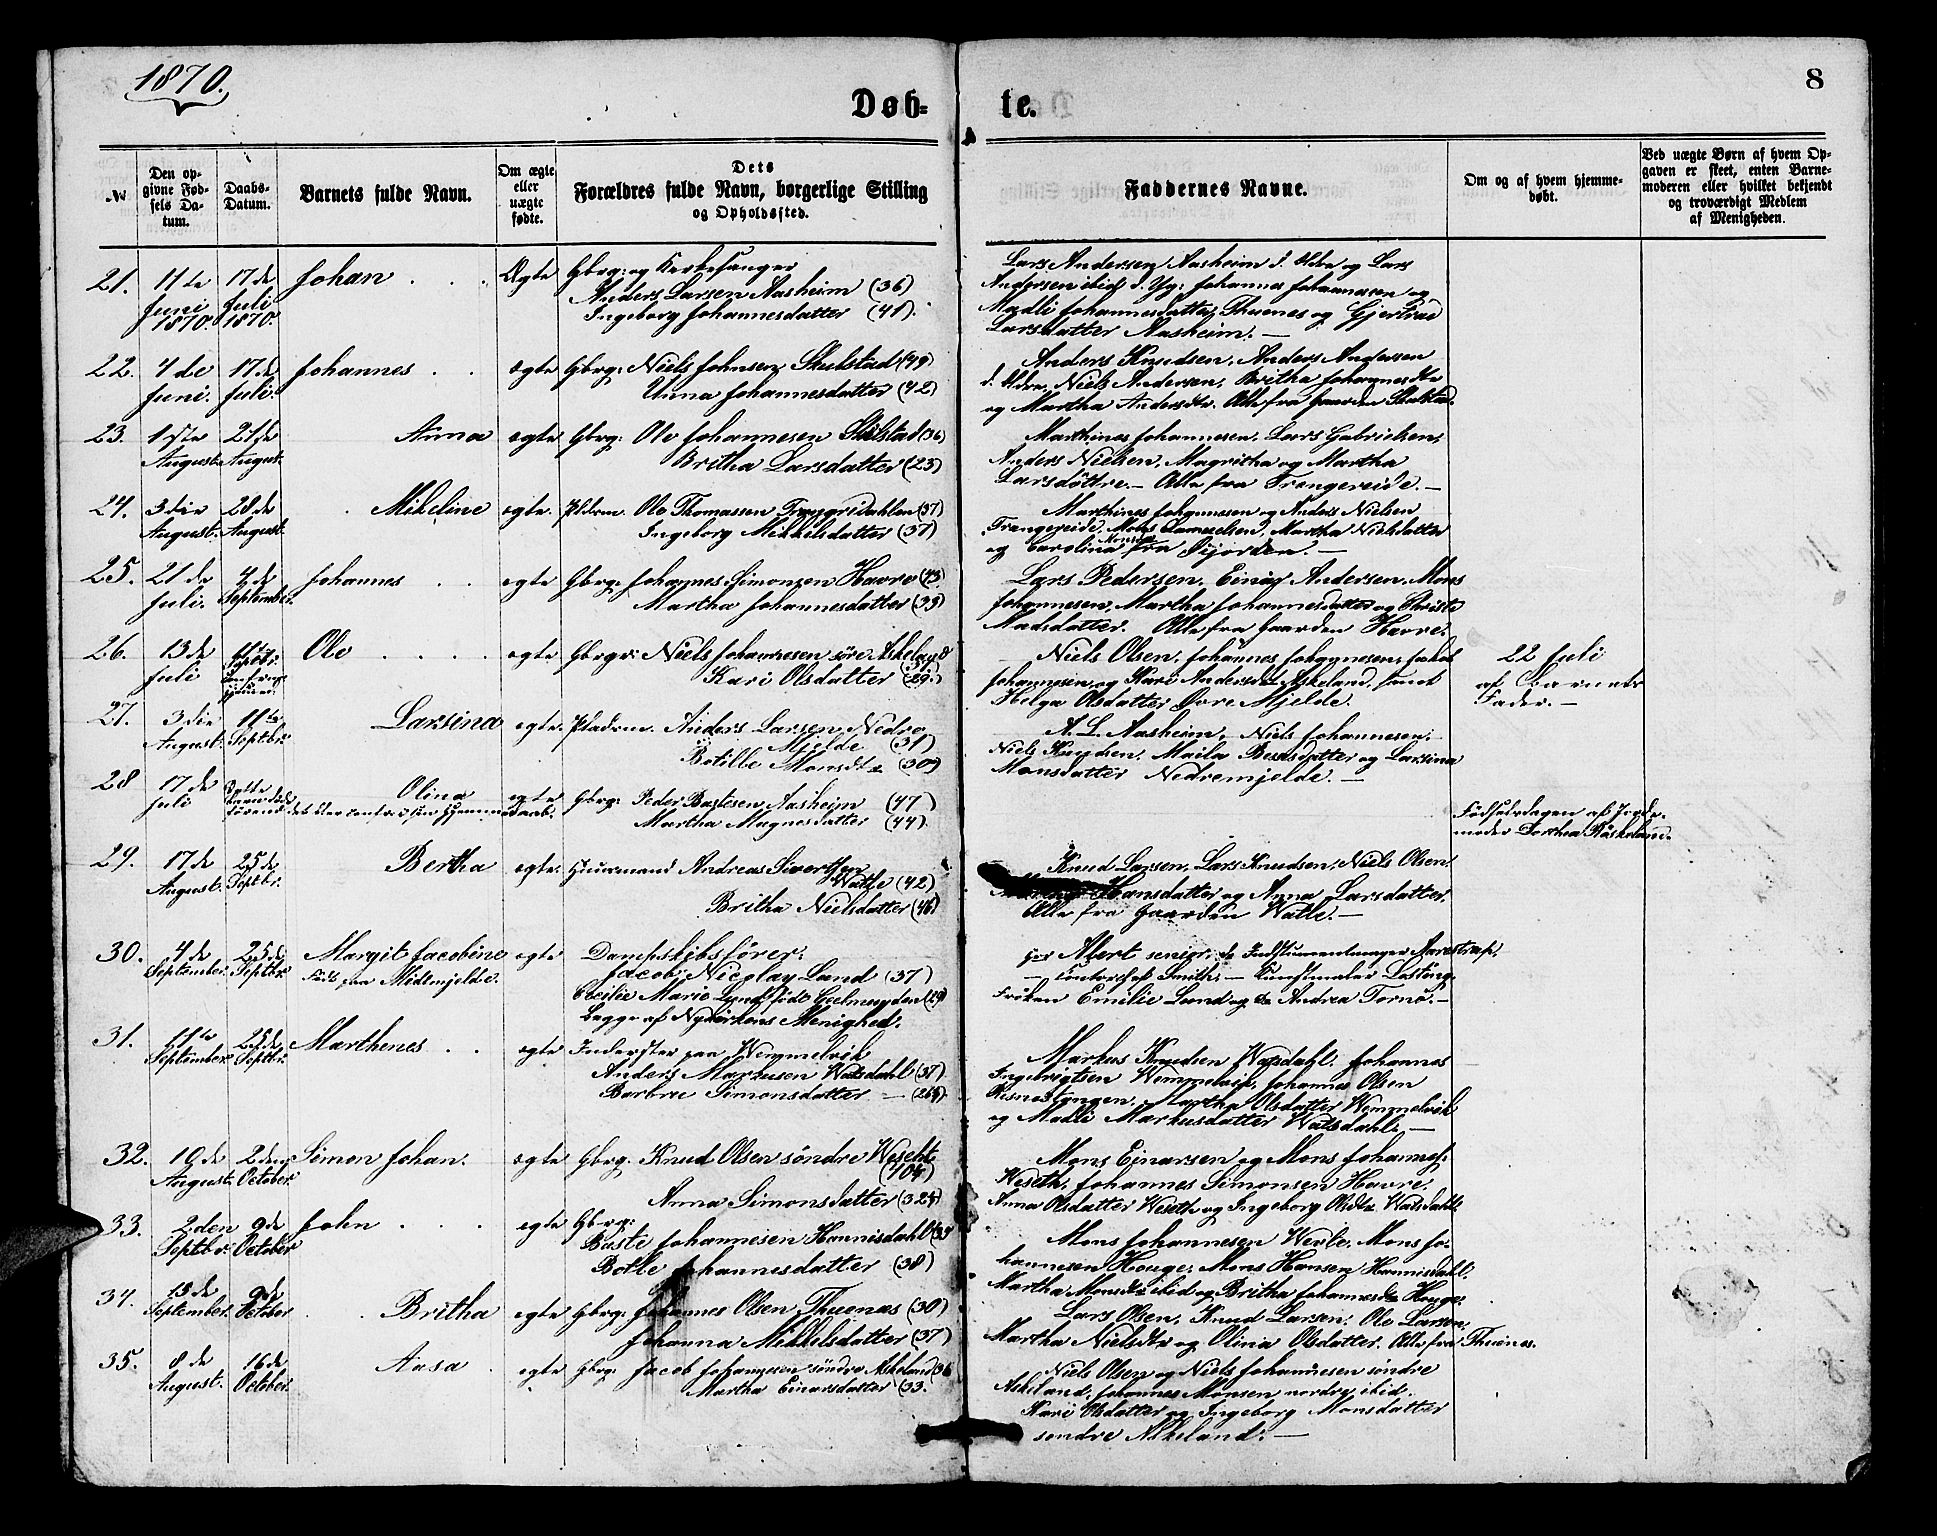 1870.
8
Døb-
te.
№
Den op-
givne Fød-
sels Da-
tum.
Daabs-
Datum.
Barnets fulde Navn.
Om ægte
eller
uægte
fødte.
Dets
Forældres fulde Navn, borgerlige Stilling
og Opholdssted.
Faddernes Navne.
Om og af hvem hjemme-
døbt.
Ved uægte Børn af hvem Op-
gaven er skeet, enten Barne-
moderen eller hvilket bekjendt
og troværdigt Medlem
af Menigheden.
21.
11te
Juni
1870.
17de
Juli
1870.
Johan
Ægte
Gbrg: og Kirkesanger
Anders Larsen Aasheim (36)
Ingeborg Johannesdatter (41).
Lars Andersen Aasheim d. Eldre og Lars
Andersen ibid d. Yg: Johannes Johannesen og
Madli Johannesdatter, Thuenes og Gjertrud
Larsdatter Aasheim. —
22.
4de
Juni.
17de
Juli.
Johannes
ægte
Gbrg: Niels Johnsen Skulstad (49)
Unna Johannesdatter (42)
Anders Knudsen, Anders Andersen
d. Eldre, Niels Andersen, Britha Johannesdtr
og Martha Andersdtr. Alle fra Gaarden Skulstad.
23.
1ste
August.
21de
August.
Anna
ægte
Gbrg: Ole Johannesen Skulstad (36)
Britha Larsdatter (23)
Marthines Johannesen, Lars Gabrielsen,
Anders Nielsen, Magritha og Martha
Larsdöttre. — Alle fra Trengereide. —
24.
3die
August.
28de
August.
Mikeline
ægte.
Pladsm. Ole Thomassen (37)
Ingeborg Mikkelsdatter (37)
Marthines Johannesen og Anders Nielsen
Trengereide, Mons Samuelsen, Martha Nielsdatter
og Carolina Monsdtr fra Öijorden. —
25.
21de
Juli.
4de
September.
Johannes
ægte
Gbrg: Johannes Simonsen Havre (43)
Martha Johannesdatter (39)
Lars Pedersen, Einar Andersen, Mons
Johannesen, Martha Johannesdatter og Christi
Madsdatter. Alle fra Gaarden Havre.
26.
13de
Juli
11te
Septbr:
Ole
ægte
Gbrgr: Niels Johannesen söre Askeland
Kari Olsdatter (29).
Niels Olsen, Johannes Johannesen, Jakob
Johannesen og Kari Andersdtr Askeland, samt
Helga Olsdatter Övre Mjelde.
22 Juli
af Barnets
Fader. —
27.
3die
August.
11te
Septbr:
Larsina
ægte.
Pladsm. Anders Larsen Nedre
Mjelde (31)
Botille Monsdtr (30)
A. L. Aasheim, Niels Johannesen,
Niels Knudsen, Maila Bentsdatter og Larsina
Monsdatter Nedremjelde. —
28
17de
Juli
Dette
Barn döde
förend det blev confr: i sin Hjemmedaab.
Olina
ægte
Gbrg: Peder Bastesen Aasheim (47)
Martha Magnesdatter (44)
Födselsdagen af Jorde-
moder Dorthea
29.
17de
August.
25de
Septbr:
Bertha
ægte.
Huusmand Andreas Sivertsen
Watle (42)
Britha Nielsdatter (46)
Knud Larsen, Lars Knudsen, Niels Olsen,
Hansdatter og Anna Larsdatter.
Alle fra Gaarden Watle. —
30.
4de
September.
25de
Septbr
Margit Jacobine
Födt paa Midtmjelde.
ægte
Dampskibsförer:
Jacob Nicolay Lund (37)
Cecilie Marie Lund, föd Geelmuyden (29)
Begge af Nykirkens Menighed.
Albert senior, do Instrumentmager Marstrand,
— Contorchef Smith. — Kunstmaler Losting,
Fröken Emilie Lund og do Andrea Tornö. —
31.
11te
September
25de
Septbr:
Marthenes
ægte
Inderster paa Wemmelvik
Anders Markusen Watsdahl (37)
Barbra Simonsdatter — (26½)
Markus Knudsen Watsdahl, Johannes
Ingebrigtsen Wemmelvik, Johannes Olsen
Risnestangen, Martha Olsdatter Wemmelvik
og Madli Markusdatter Watsdahl. —
32.
10de
August.
2den
October.
Simon Johan.
ægte
Gbrg. Knud Olsen söndre Weseth
(40½)
Anna Simonsdatter (32½)
Mons Einarsen og Mons Johannes:
Weseth, Johannes Simonsen Havre,
Anna Olsdatter Weseth og Ingeborg Olsdtr Watsdahl.
33.
2den
Septbr:
9de
October
John
ægte
Gbrg:
Baste Johannesen Hannisdahl (39
Botle Johannesdatter (38)
Mons Johannesen Werle, Mons Jo-
hannesen Houge, Mons Hansen Hannisdahl,
Martha Monsdtr ibid og Britha Johannesdtr Houge.
34.
13de
September.
9de
October
Britha
ægte
Gbrg: Johannes Olsen Thuenæs (30)
Johanna Mikkelsdatter (37)
Lars Olsen, Knud Larsen, Ole Larsen,
Martha Nielsdtr og Olina Olsdatter. Alle fra Thuenes.
35.
8de
August.
16de
October.
Aasa
ægte
Gbrg: Jacob Johannesen söndre Askeland (36
Martha Einarsdatter (33.
Niels Olsen og Niels Johannesen söndre
Askeland, Johannes Monsen nordre ibid.
Kari Olsdatter og Ingeborg Monsdatter
söndre Askeland. —